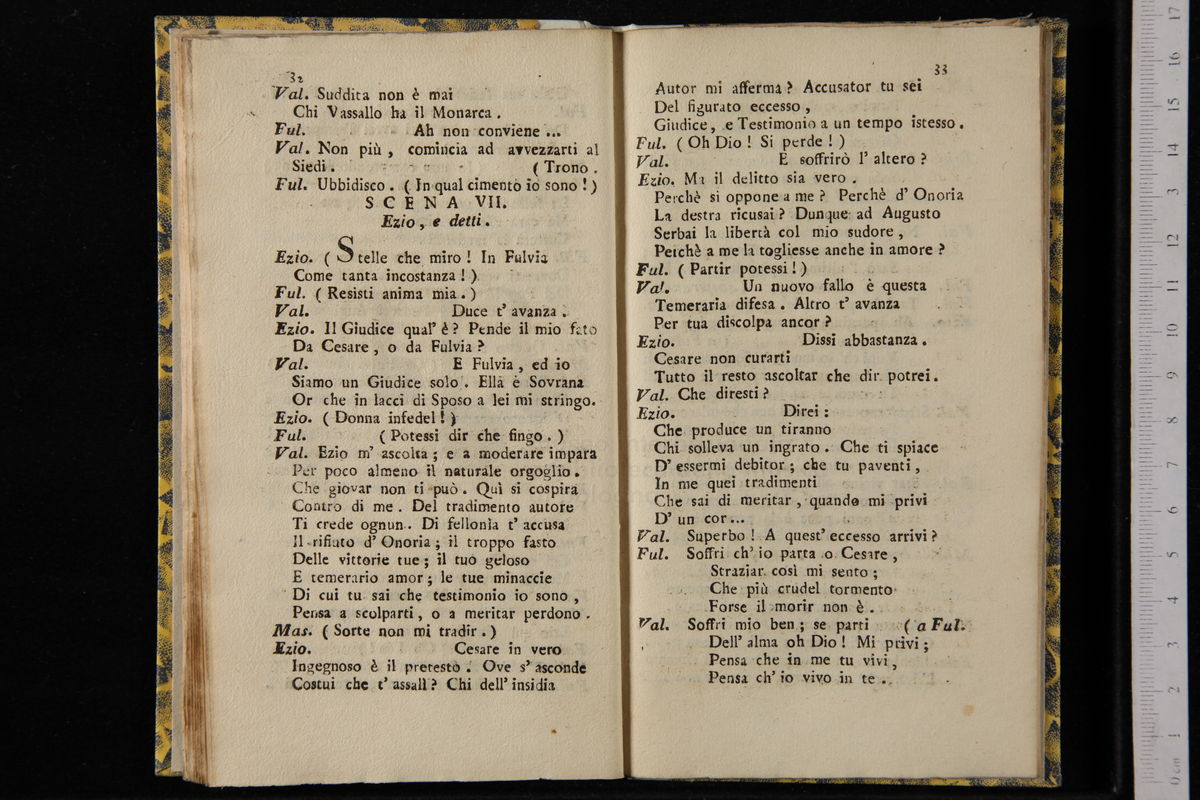 32
Val. Suddita non è mai
Chi Vassallo ha il Monarca.
Ful. Ah non conviene ...
Val. Non più, comincia ad avvezzarti al
Siedi. (Trono.
Ful. Ubbidisco. (In qual cimento io sono!)
SCENA VII.
Ezio, e detti.
Ezio. (Stelle che miro! In Fulvia
Come tanta incostanza!)
Ful. (Resisti anima mia.)
Val. Duce t' avanza.
Ezio. Il Giudice qual' è? Pende il mio fato
Da Cesare, o da Fulvia?
Val. E Fulvia, ed io
Siamo un Giudice solo. Ella è Sovrana
Or che in lacci di Sposo a lei mi stringo.
Ezio. (Donna infedel!)
Ful. (Potessi dir che fingo.)
Val. Ezio m' ascolta; e a moderare impara
Per poco almeno il naturale orgoglio.
Che giovar non ti può. Quì si cospira
Contro di me. Del tradimento autore
Ti crede ognun. Di fellonia t' accusa
Il rifiuto d' Onoria; il troppo fasto
Delle vittorie tue; il tuo geloso
E temerario amor; le tue minaccie
Di cui tu sai che testimonio io sono,
Pensa a scolparti, o a meritar perdono.
Mas. (Sorte non mi tradir.)
Ezio. Cesare in vero
Ingegnoso è il pretesto. Ove s' asconde
Costui che t' assall? Chi dell' insidia
33
Autor mi afferma? Accusator tu sei
Del figurato eccesso,
Giudice, e Testimonio a un tempo istesso.
Ful. (Oh Dio! Si perde!)
Val. E soffrirò l' altero?
Ezio. Ma il delitto sia vero.
Perchè si oppone a me? Perchè d' Onoria
La destra ricusai? Dunque ad Augusto
Serbai la libertà col mio sudore,
Perchè a me la togliesse anche in amore?
Ful. (Partir potessi!)
Val. Un nuovo fallo è questa
Temeraria difesa. Altro t' avanza
Per tua discolpa ancor?
Ezio. Dissi abbastanza.
Cesare non curarti
Tutto il resto ascoltar che dir potrei.
Val. Che diresti?
Ezio. Direi:
Che produce un tiranno
Chi solleva un ingrato. Che ti spiace
D' essermi debitor; che tu paventi,
In me quei tradimenti
Che sai di meritar, quando mi privi
D' un cor...
Val. Superbo! A quest' eccesso arrivi?
Ful. Soffri ch' io parta o Cesare,
Straziar così mi sento;
Che più crudel tormento
Forse il morir non è.
Val. Soffri mio ben; se parti (a Ful.
Dell' alma oh Dio! Mi privi;
Pensa che in me tu vivi,
Pensa ch' io vivo in te.
0 cm 1 2 3 4 5 6 7 8 9 10 11 12 13 14 15 16 17